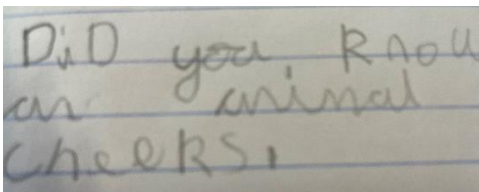 DiD you know
an animal
cheeks,